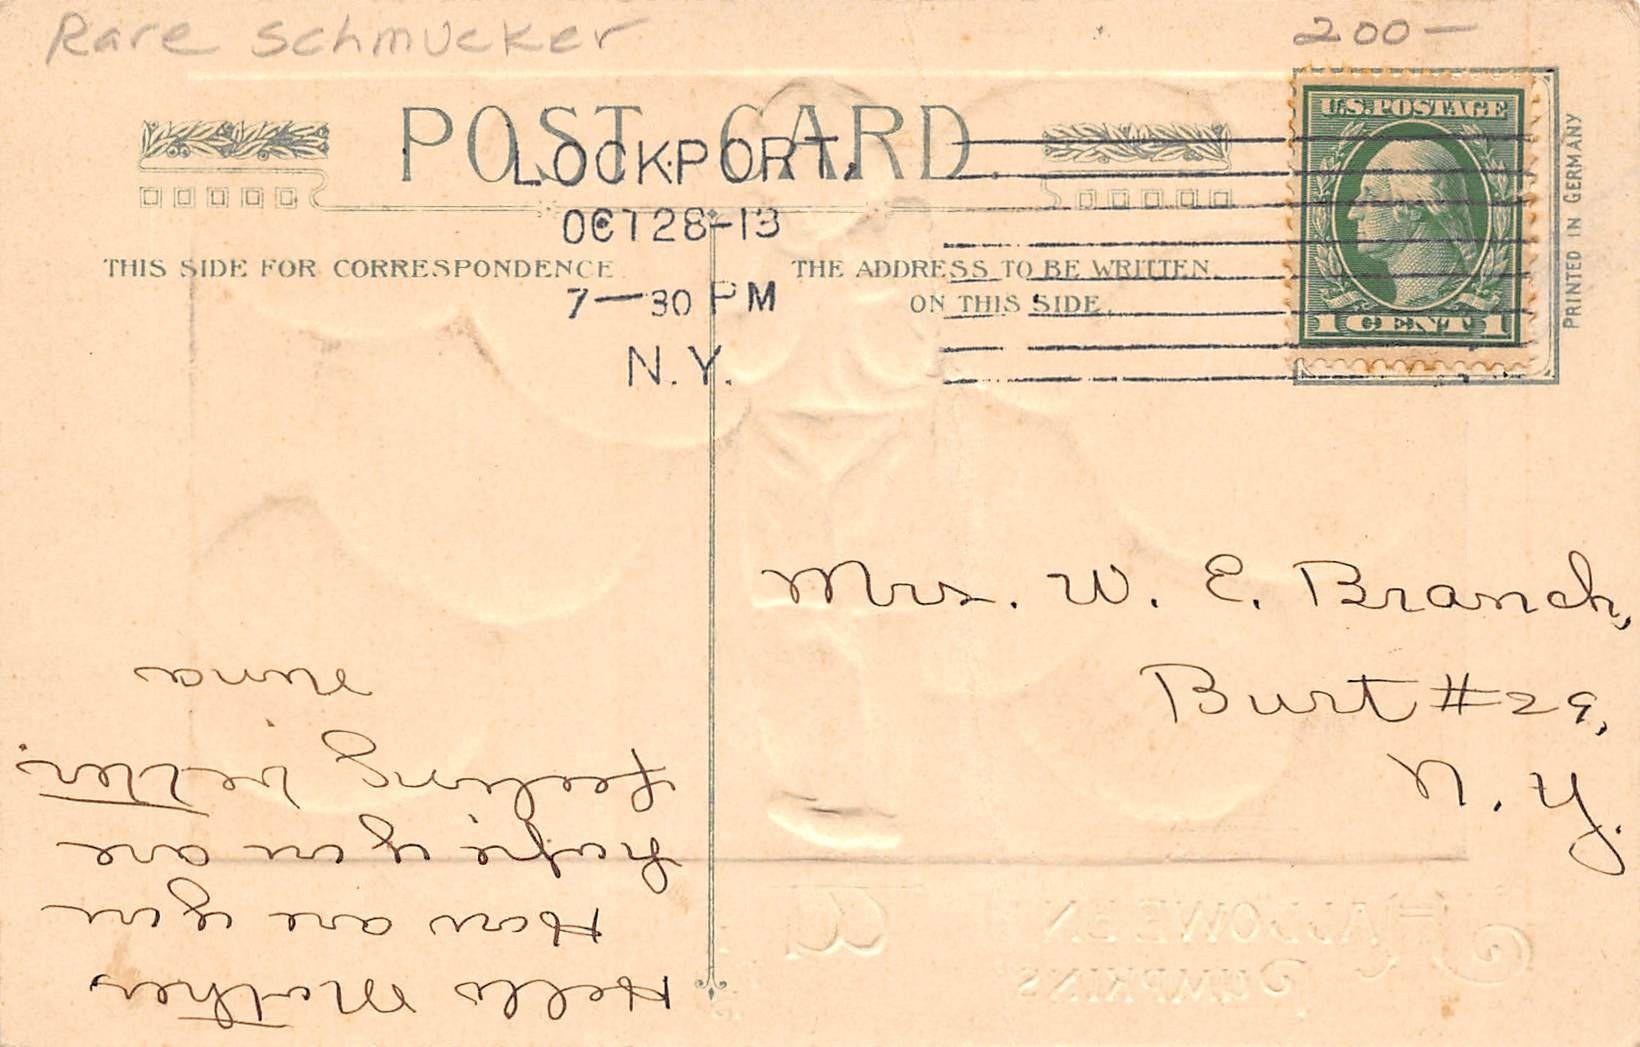 Rare Schmucker
200-
POST CARD.
LOCKPORT,
OCT 28-13
7-30 PM
N.Y.
U.S. POSTAGE
1 CENT 1
PRINTED IN GERMANY
THIS SIDE FOR CORRESPONDENCE
THE ADDRESS TO BE WRITTEN
ON THIS SIDE.
Mrs. W. E. Branch,
Burt #29,
N. Y.
Hello Mother
How are you
hope you are
feeling better.
Nina
A HALLOWEEN
PUMPKINS